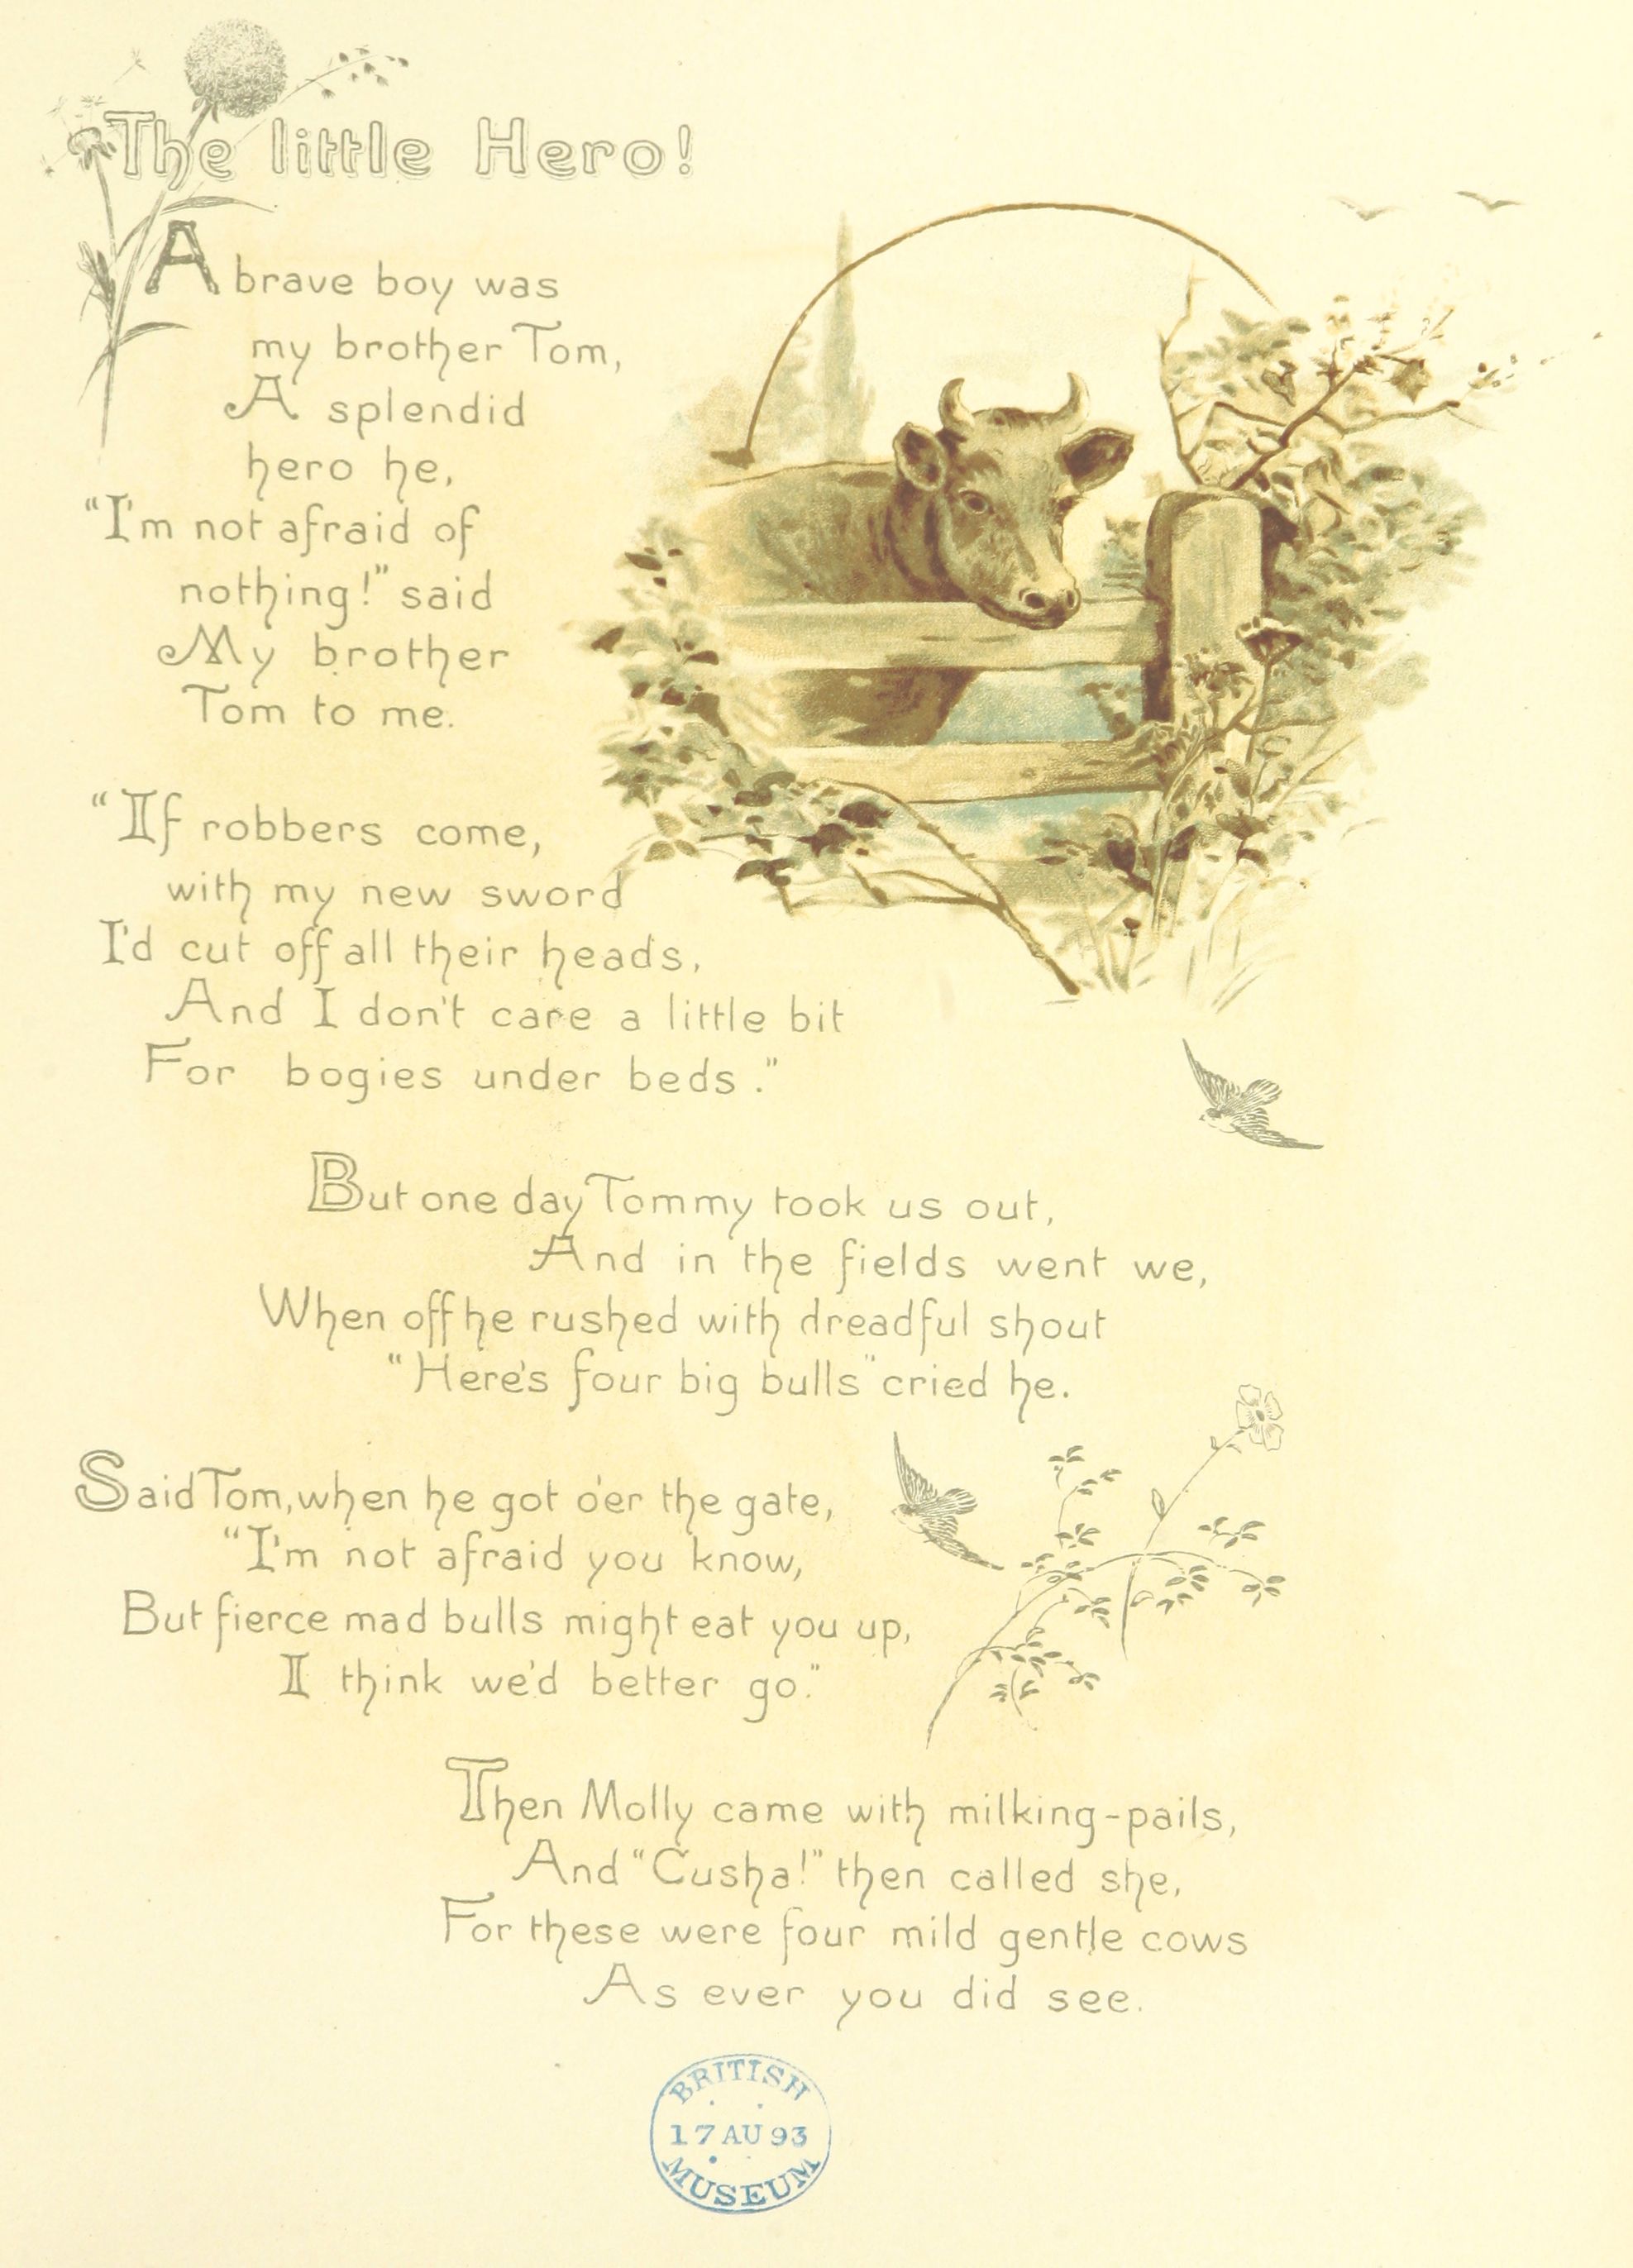 The little Hero!
A brave boy was
my brother Tom,
A splendid
hero he,
"I'm not afraid of
nothing!" said
My brother
Tom to me.
"If robbers come,
with my new sword
I'd cut off all their heads,
And I don't care a little bit
For bogies under beds."
But one day Tommy took us out,
And in the fields went we,
When off he rushed with dreadful shout
"Here's four big bulls" cried he.
Said Tom, when he got o'er the gate,
"I'm not afraid you know,
But fierce mad bulls might eat you up,
I think we'd better go."
Then Molly came with milking-pails,
And "Cusha!" then called she,
For these were four mild gentle cows
As ever you did see.
BRITISH
17 AU 93
MUSEUM